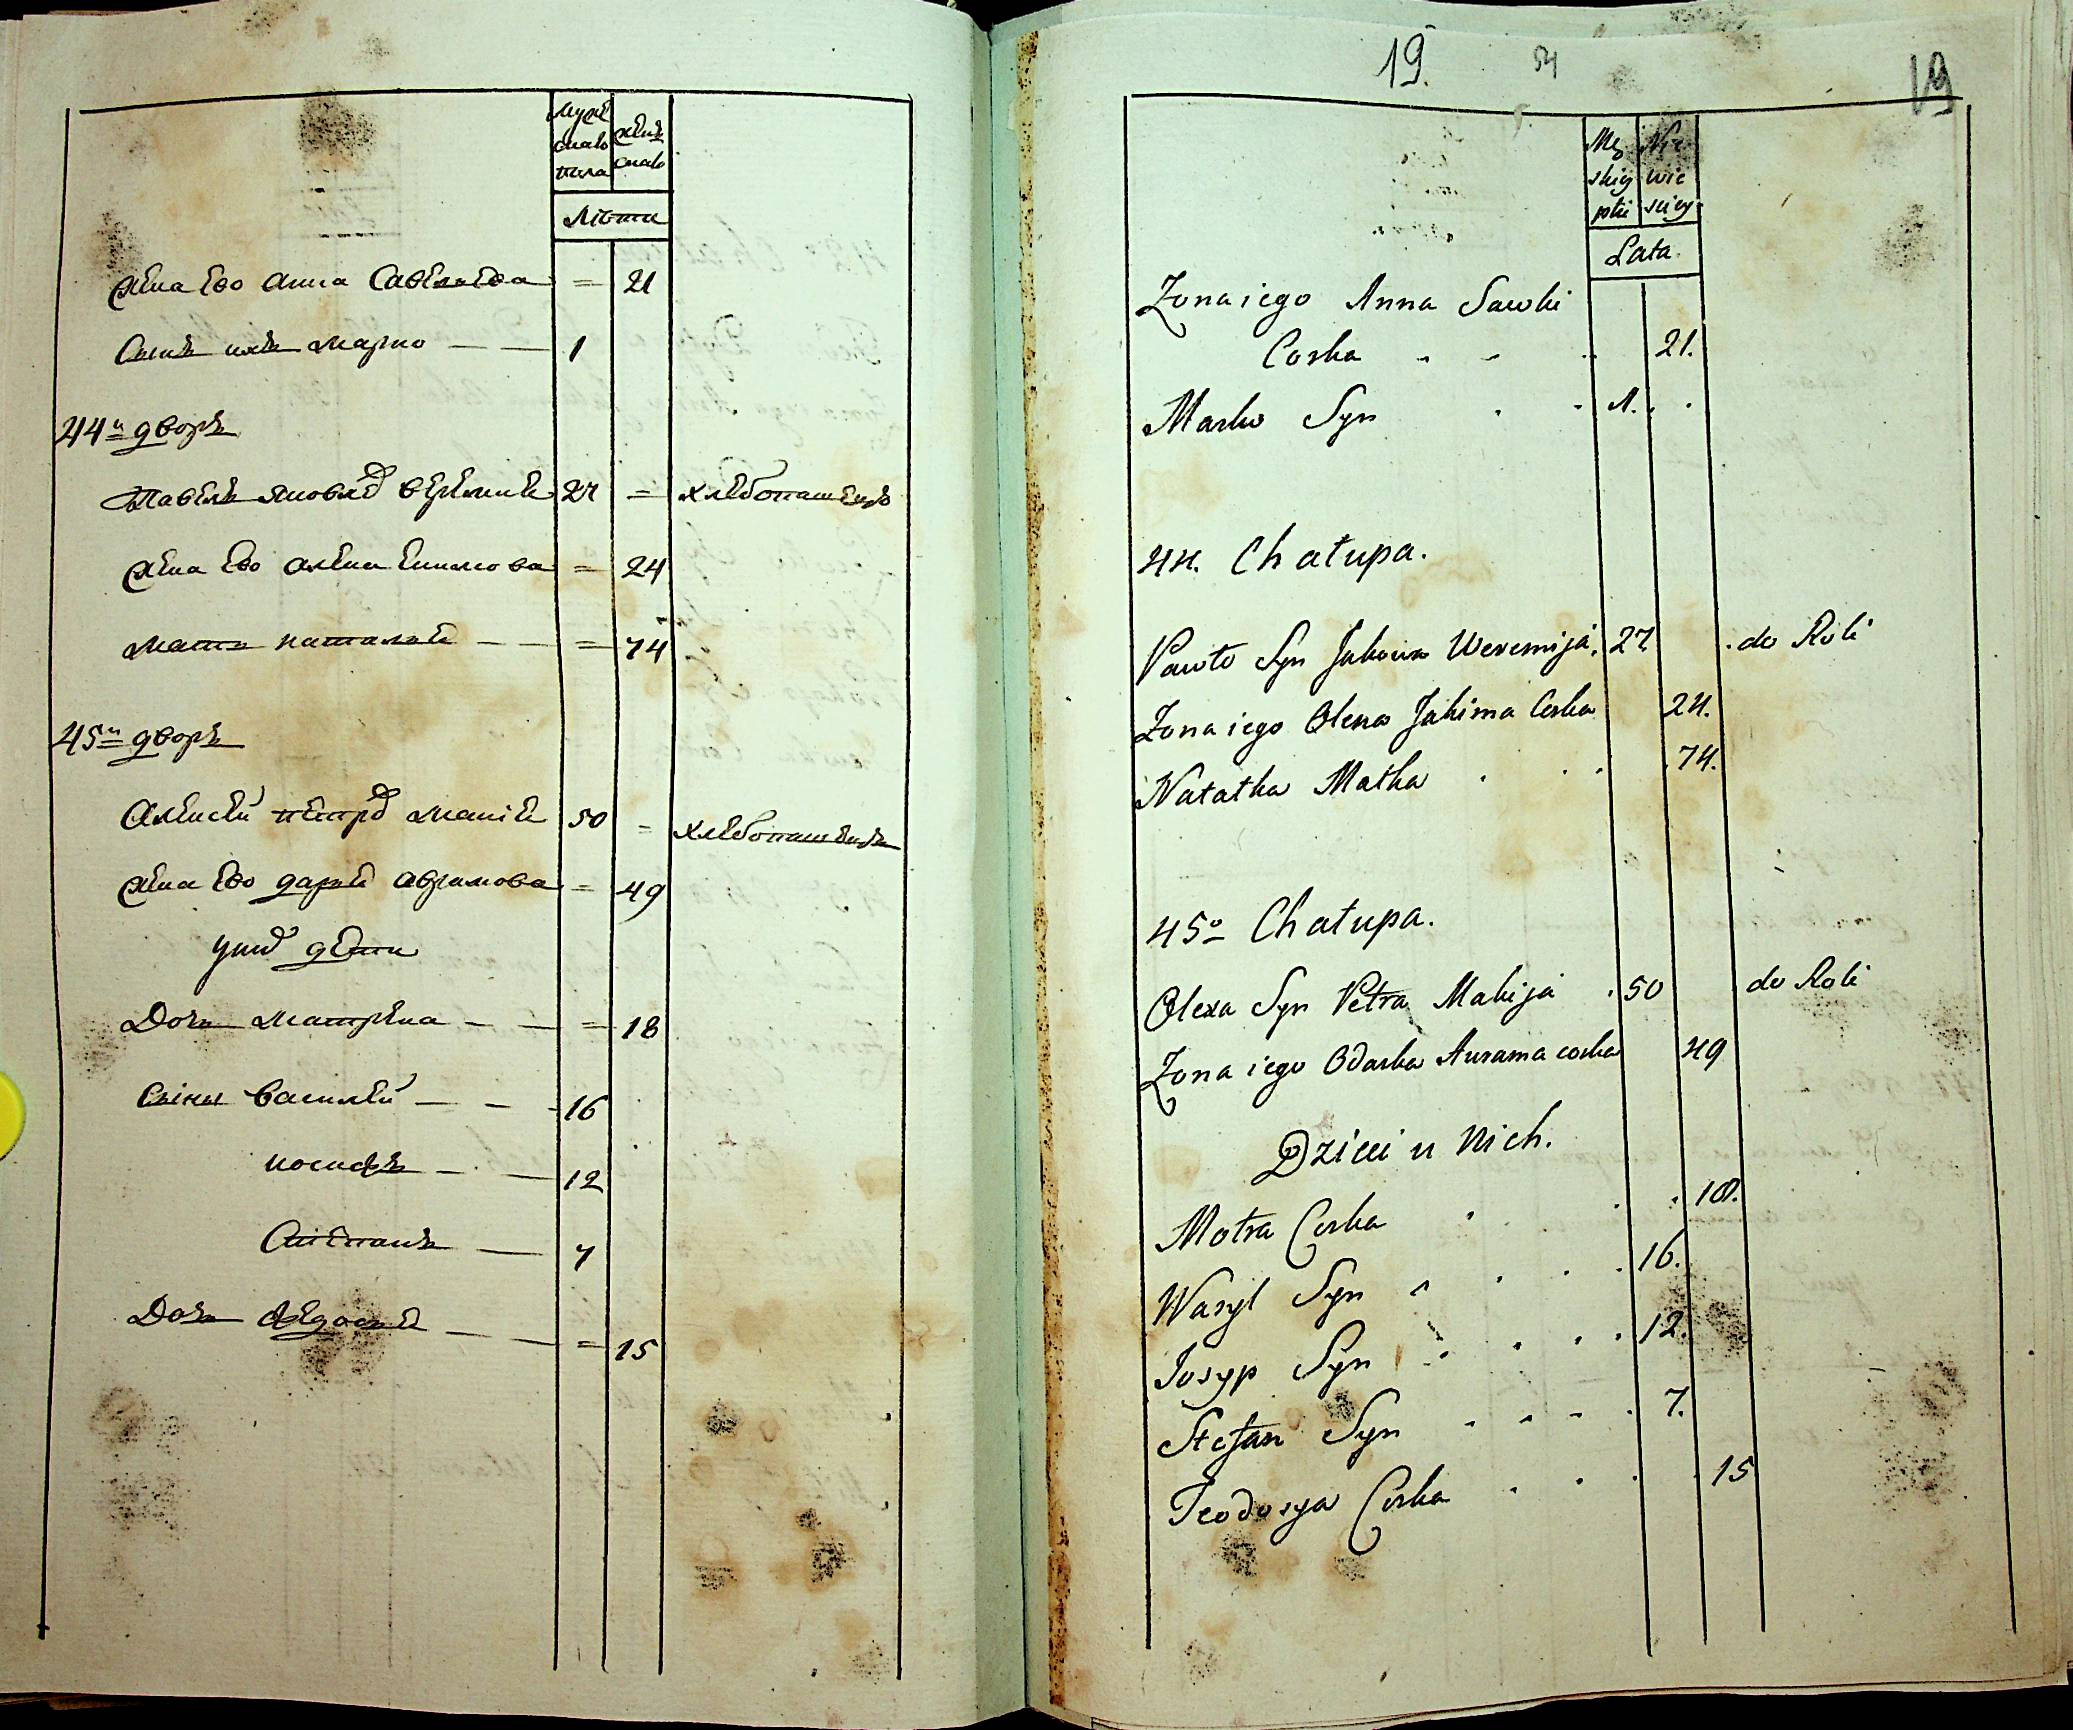 Муже
скаго
пола
женс
скаго
Лѣта
жена ево анна Савѣльева = 21
Сынъ ихъ марко 1
44й дворъ
Павелъ яковлѣ верѣмие 27 = хлѣбопашецъ
жена ево алена екимова = 24
мать наталья = 74
45й дворъ
Алексѣй петрѡ макие 50 = хлѣбопашецъ
жена ево дарья аврамова = 49
у них дѣти
Дочь матрена = 18
Сыны василей 16
иосифъ 12
Степанъ 7
Дочь федосья = 15
19. 19
Mę
skiey
płci
Nie
wie
sciey
Lata
Zona iego Anna Sawki
Corka 21.
Marko Syn 1.
44. Chałupa.
Pawło Syn Jakowa Weremija 27 do Roli
Zona iego Olena Jakima Corka 24.
Natałka Matka 74.
45o Chałupa.
Olexa Syn Petra Makija 50 do Roli
Zona iego Odarka Awrama corka 49
Dzieci u nich.
Motra Corka 18.
Wasyl Syn 16.
Josyp Syn 12.
Stefan Syn 7.
Teodosya Corka 15